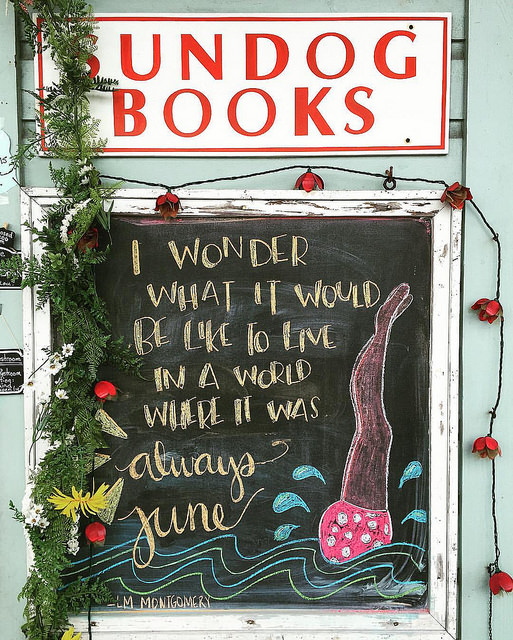 SUNDOG
BOOKS
I WONDER
WHAT IT WOULD
BE LIKE TO LIVE
IN A WORLD
WHERE IT WAS
always
june
-LM MONTGOMERY